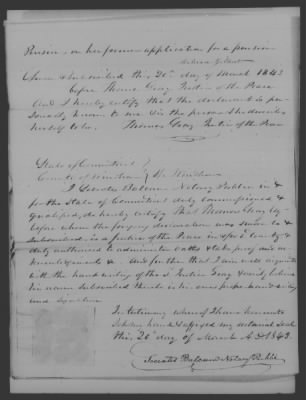 Pension, on her former application for a pension
Sworn & subscribed this 20th day of March 1843
before Thomas Gray Justice of the Peace
And I hereby certify that the declarant is per
sonally known to me & is the person she describes
herself to be, Thomas Gray Justice of the Peace
State of Connecticut }
County of Windham } Ss. Windham
Notary Public in &
for the State of Connecticut duly commissioned &
qualified, do hereby certify that Thomas Gray Esq
before whom the foregoing declaration was sworn to &
subscribed, is a Justice of the Peace in & for County &
duly authorized to administer oaths & take proof and
&c. And further that I am well acquainted
with the hand writing of the Sd Justice Gray and believe
his name subscribed thereto is his own proper hand writing
and signature
In testimony whereof I have hereunto
set my hand & affixed my notarial seal
this 20th day of March A.D. 1843.
Notary Public